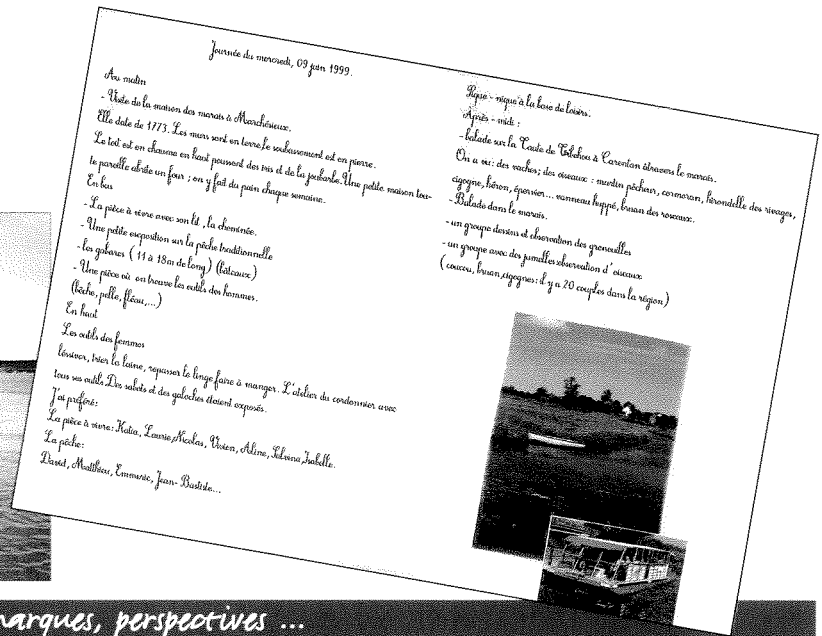 Journée du mercredi, 09 juin 1999.
Au matin
- Visite de la maison des marais à Marchésieux.
Elle date de 1773. Les murs sont en terre,le soubassement est en pierre.
Le toit est en chaume en haut poussent des iris et de la joubarbe. Une petite maison tou-
te pareille abrite un four ; on y fait du pain chaque semaine.
En bas
- La pièce à vivre avec son lit , la cheminée.
- Une petite exposition sur la pêche traditionnelle
- les gabares ( 11 à 18m de long ) (bâteaux)
- Une pièce où on trouve les outils des hommes.
(bêche, pelle, fléau,...)
En haut
Les outils des femmes
léssiver, trier la laine, repasser le linge,faire à manger. L'atelier du cordonnier avec
tous ses outils.Des sabots et des galoches étaient exposés.
J'ai préféré:
La pièce à vivre: Katia, Laurie,Nicolas, Vivien, Aline, Isabelle.
La pêche:
David, Matthieu, Emmeric, Jean- Batiste...
Pique - nique à la base de loisirs.
Après - midi :
- balade sur la Taute de à Carentan àtravers le marais.
On a vu: des vaches; des oiseaux : martin pêcheur, cormoran, hirondelle des rivages,
cigogne, héron, épervier... vanneau huppé, bruan des roseaux.
- Balade dans le marais.
- un groupe dessin et observation des grenouilles
- un groupe avec des jumelles:observation d'oiseaux
( coucou, bruan,cigognes: il y a 20 couples dans la région )
arques, perspectives ...